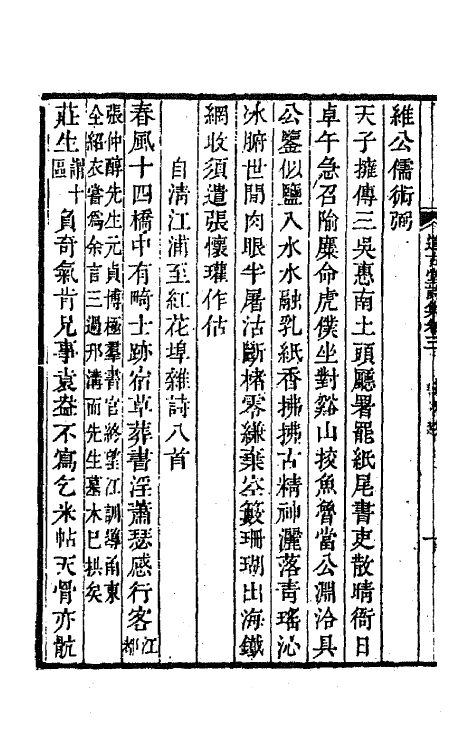 維公儒術弼
天子擁傳三吳惠南土頭廳署罷紙尾書吏散晴衙日
卓午急召隃麋命虎僕坐對谿山挍魚魯當公淵洽具
公鑒似鹽入水水融乳紙香拂拂古精神灑落青瑤沁
冰腑世閒肉眼半屠沽斷楮零縑棄笭籔珊瑚出海鐵
網收須遣張懷瓘作估
自清江浦至紅花埠雜詩八首
春風十四橋中有畸士跡宿草葬書淫蕭瑟感行客江都
張仲醇先生元貞博極羣書官終望江訓導甬東
全紹衣嘗為余言三過邗溝而先生墓木已拱矣
莊生謂十區負奇氣肯兄事袁盎不寫乞米帖天骨亦骯